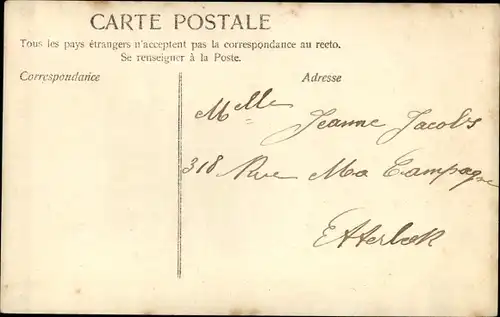 CARTE POSTALE
Tous les pays étrangers n'acceptent pas la correspondance au recto.
Se renseigner à la Poste.
Correspondance
Adresse
Melle Jeanne Jacobs
318 Rue Ma Campagne
Etterbek